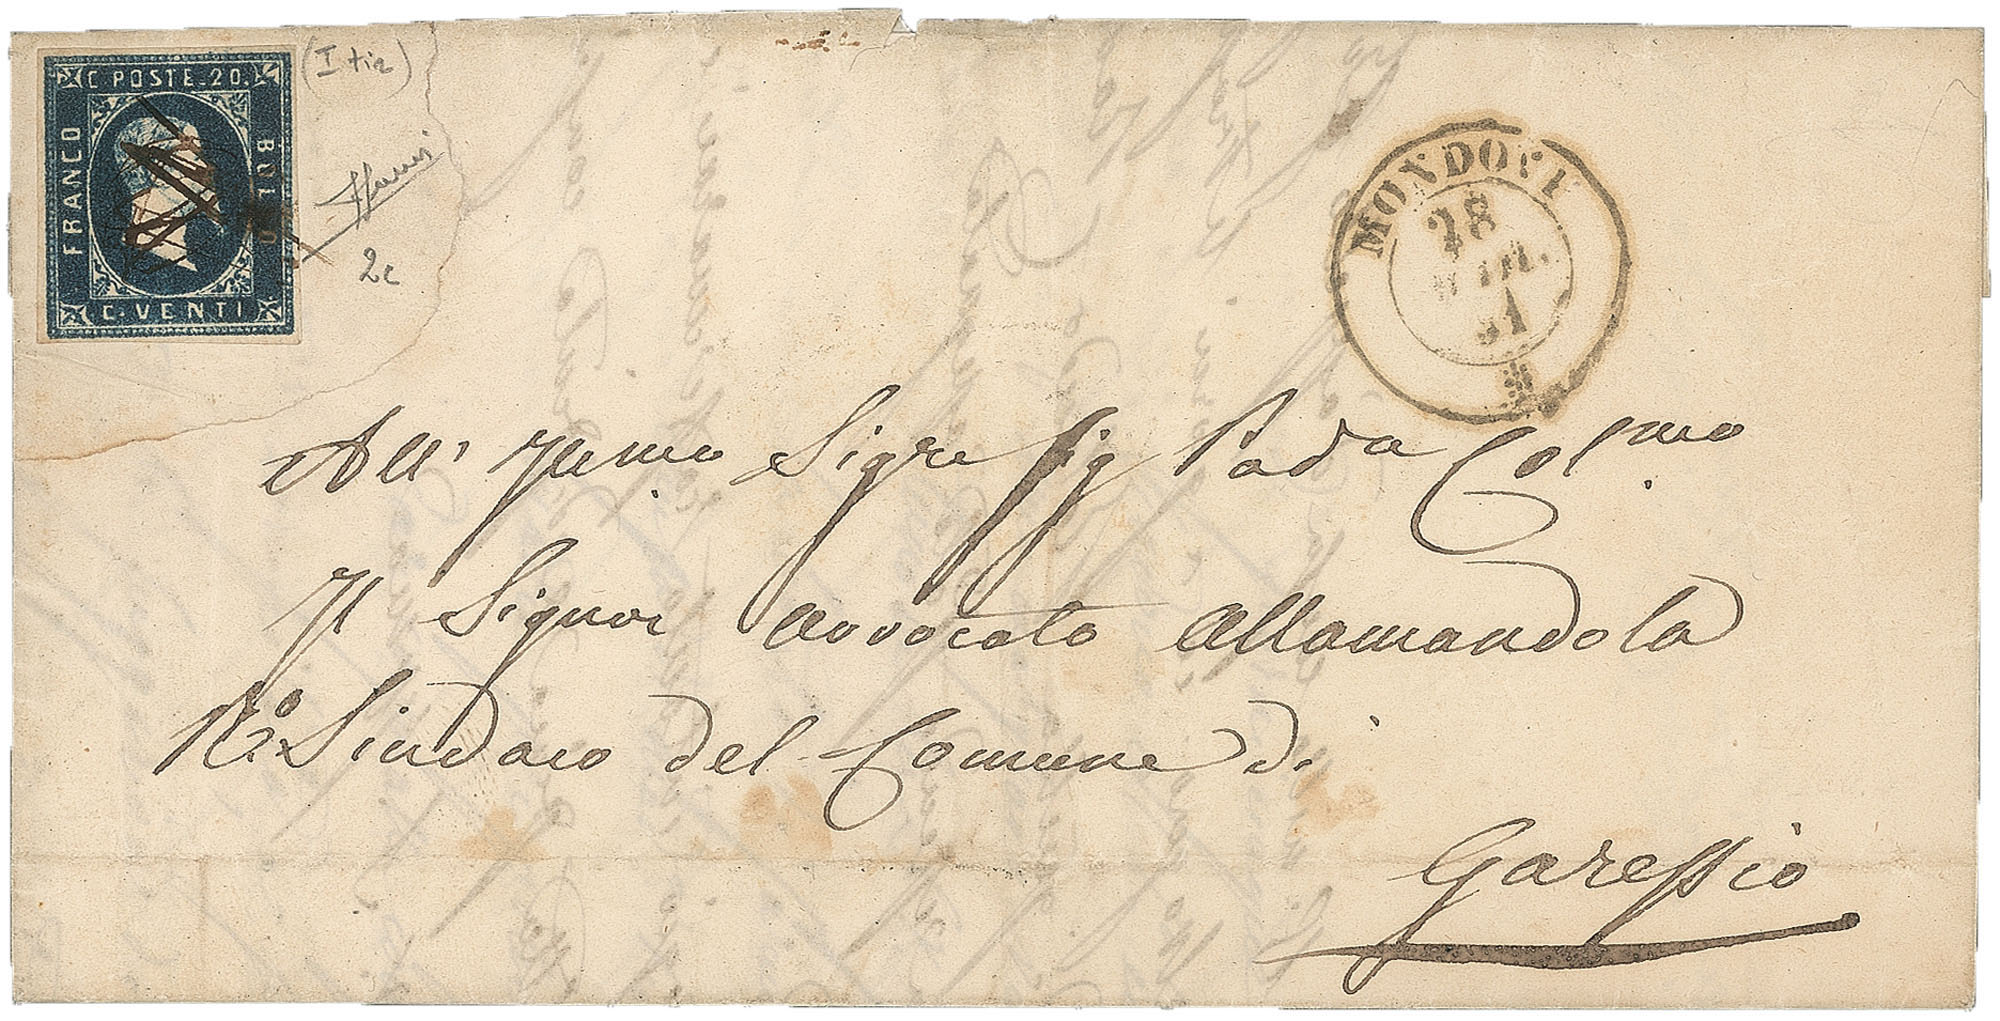 C POSTE 20.
FRANCO
BOLLO
C. VENTI
(I tir)
2c
MONDOVI
28
51
All' Illmo Sigre Sig Pad
Il Signor Avvocato Allamandola
Sindaco del Comune di
Garessio